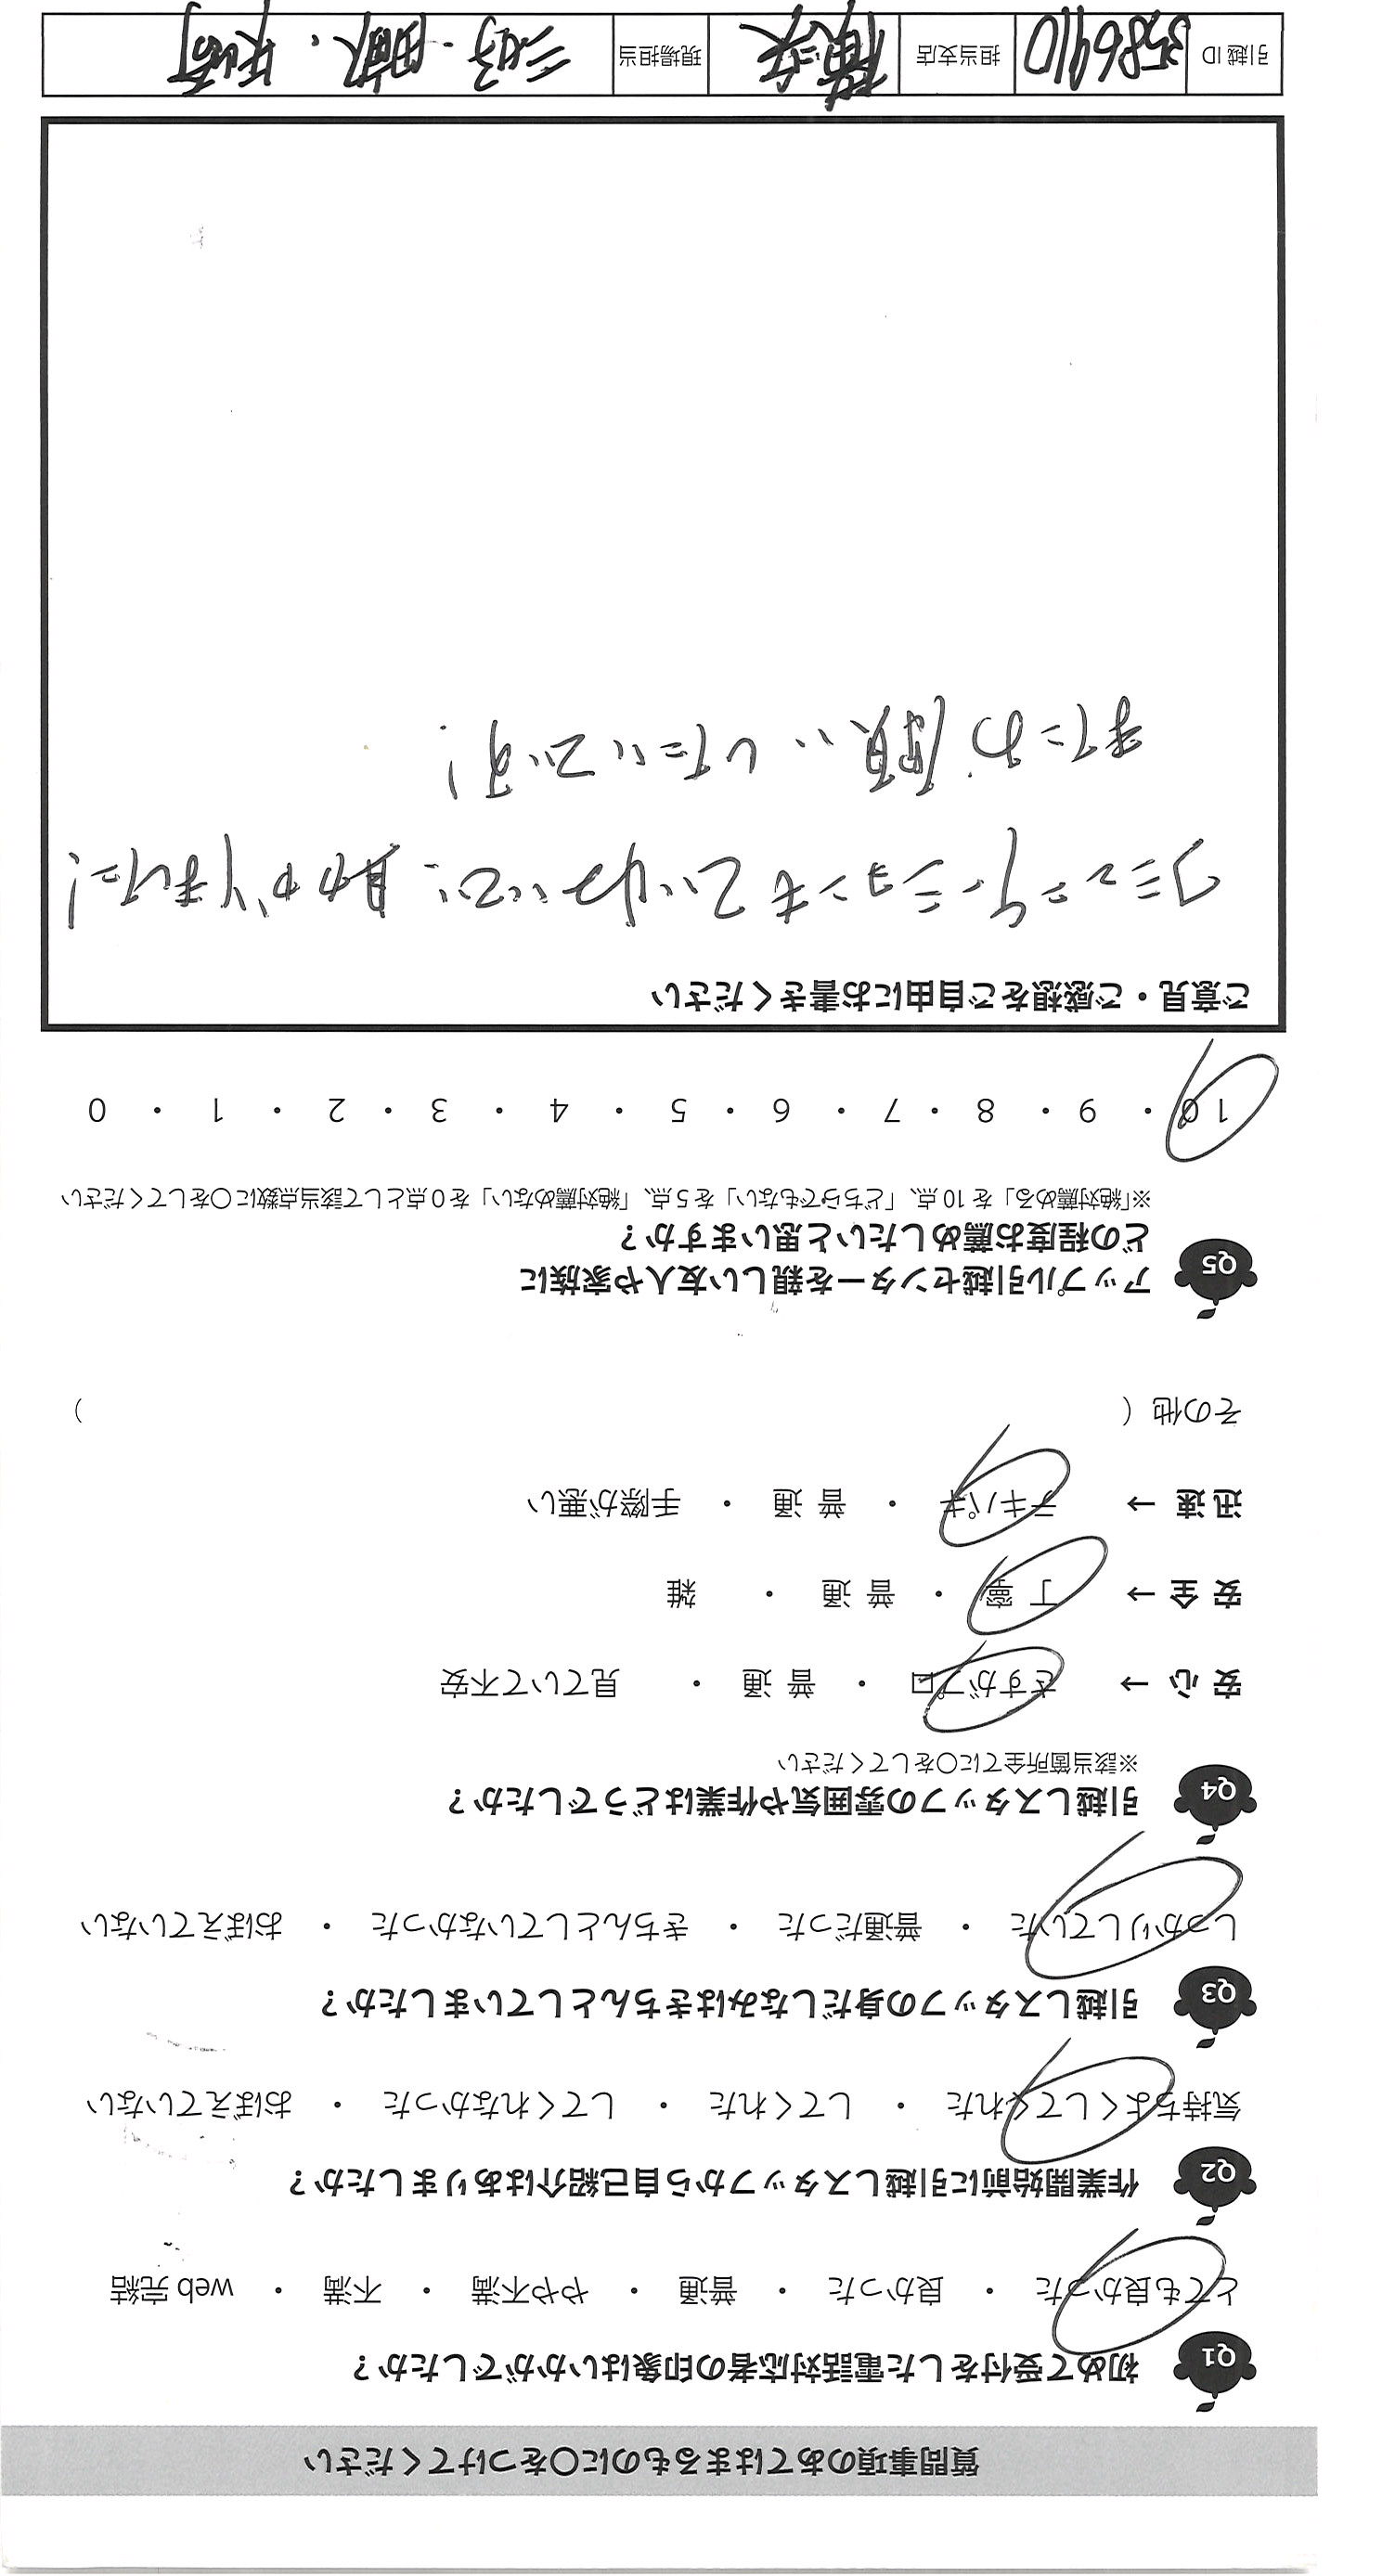 質問事項のあてはまるものに〇をつけてください
Q1 初めて受付をした電話対応者の印象はいかがでしたか？
とても良かった ・ 良かった ・ 普通 ・ やや不満 ・ 不満 ・ web 完結
Q2 作業開始前に引越しスタッフから自己紹介はありましたか？
気持ちよくしてくれた ・ してくれた ・ してくれなかった ・ おぼえていない
Q3 引越しスタッフの身だしなみはきちんとしていましたか？
しっかりしていた ・ 普通だった ・ きちんとしていなかった ・ おぼえていない
Q4 引越しスタッフの雰囲気や作業はどうでしたか？
※該当箇所全てに〇をしてください
安 心 → さすがプロ ・ 普 通 ・ 見ていて不安
安 全 → 丁 寧 ・ 普 通 ・ 雑
迅 速 → テキパキ ・ 普 通 ・ 手際が悪い
その他（ ）
Q5 アップル引越センターを親しい友人や家族に
どの程度お薦めしたいと思いますか？
※「絶対薦める」を 10 点、「どちらでもない」を 5 点、「絶対薦めない」を 0 点として該当点数に〇をしてください
10 ・ 9 ・ 8 ・ 7 ・ 6 ・ 5 ・ 4 ・ 3 ・ 2 ・ 1 ・ 0
ご意見・ご感想をご自由にお書きください
コミュニケーションもていねいで、助かりました！
またお願いしたいです！
引越 ID 3586910 担当支店 横浜 現場担当 三好・